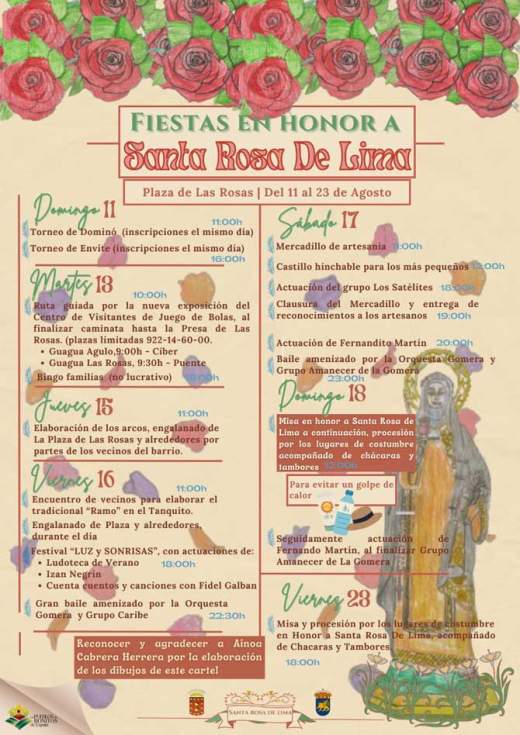 FIESTAS EN HONOR A
Santa Rosa De Lima
Plaza de Las Rosas | Del 11 al 23 de Agosto
Domingo 11
11:00h
Torneo de Dominó (inscripciones el mismo día)
Torneo de Envite (inscripciones el mismo día)
16:00h
Martes 13
10:00h
Ruta guiada por la nueva exposición del
Centro de Visitantes de Juego de Bolas, al
finalizar caminata hasta la Presa de Las
Rosas. (plazas limitadas 922-14-60-00.
• Guagua Agulo,9:00h - Ciber
• Guagua Las Rosas, 9:30h - Puente
Bingo familias (no lucrativo)
Jueves 15
11:00h
Elaboración de los arcos, engalanado de
La Plaza de Las Rosas y alrededores por
partes de los vecinos del barrio.
Viernes 16
11:00h
Encuentro de vecinos para elaborar el
tradicional “Ramo” en el Tanquito.
Engalanado de Plaza y alrededores,
durante el día
Festival “LUZ y SONRISAS”, con actuaciones de:
• Ludoteca de Verano 18:00h
• Izan Negrín
• Cuenta cuentos y canciones con Fidel Galban
Gran baile amenizado por la Orquesta
Gomera y Grupo Caribe 22:30h
Reconocer y agradecer a Ainoa
Cabrera Herrera por la elaboración
de los dibujos de este cartel
Sábado 17
Mercadillo de artesanía
Castillo hinchable para los más pequeños
Actuación del grupo Los Satélites
Clausura del Mercadillo y entrega de
reconocimientos a los artesanos 19:00h
Actuación de Fernandito Martín 20:00h
Baile amenizado por la Orquesta Gomera y
Grupo Amanecer de la Gomera
23:00h
Domingo 18
Misa en honor a Santa Rosa de
Lima a continuación, procesión
por los lugares de costumbre
acompañado de chácaras y
tambores
Para evitar un golpe de
calor
Seguidamente actuación de
Fernando Martín, al finalizar Grupo
Amanecer de La Gomera
Viernes 23
Misa y procesión por los lugares de costumbre
en Honor a Santa Rosa De Lima, acompañado
de Chacaras y Tambores
18:00h
SANTA ROSA DE LIMA